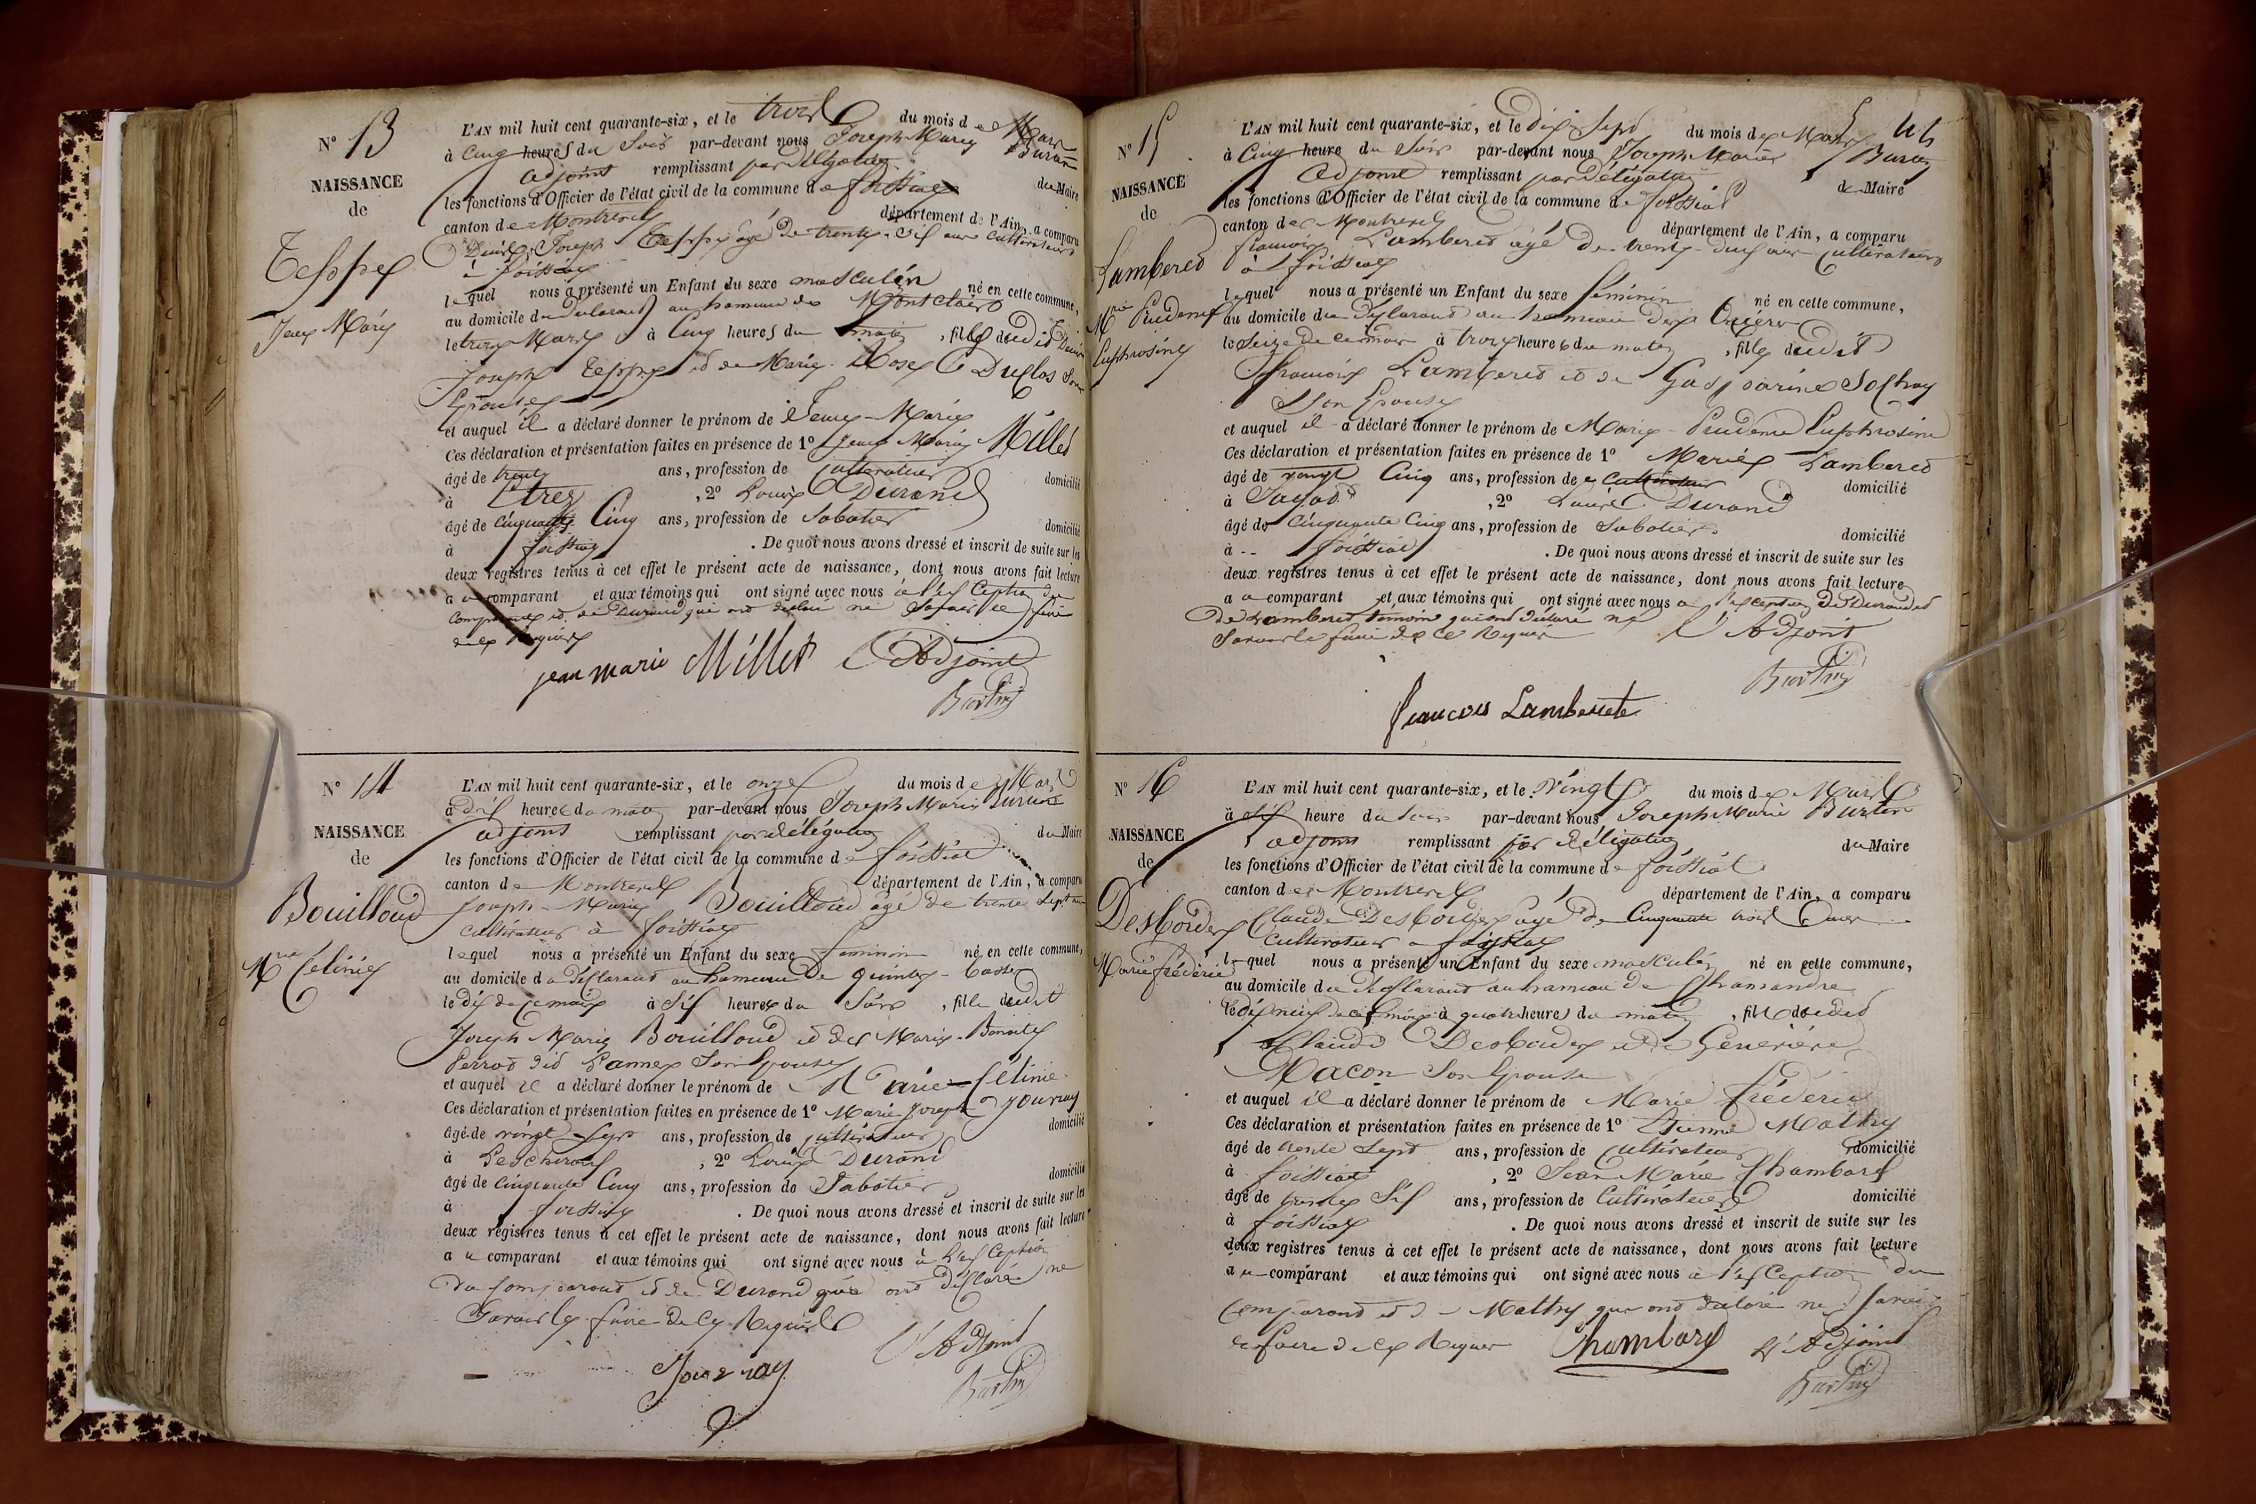 N° 13
NAISSANCE
de
Tessper
Jean Marie
L'AN mil huit cent quarante-six, et le trois du mois de Mars
à cinq heures du soir par-devant nous Joseph Marie Burtin
adjoint remplissant par délégation du Maire
les fonctions d'Officier de l'état civil de la commune de foissiat
canton de Montrevel département de l'Ain, a comparu
Joseph âgé de trente six ans cultivateur
à foissiat
lequel nous a présenté un Enfant du sexe masculin né en cette commune,
au domicile du déclarant au hameau de Montclair
le trois Mars à cinq heures du matin, fils dudit
Joseph et de Marie Rose Duclos son
Épouse
et auquel il a déclaré donner le prénom de Jean-Marie
Ces déclaration et présentation faites en présence de 1° Jean Marie Millet
âgé de trente ans, profession de cultivateur domicilié
à Etrez, 2° Louis Durand
âgé de cinquante Cinq ans, profession de Sabotier domicilié
à foissiat. De quoi nous avons dressé et inscrit de suite sur les
deux registres tenus à cet effet le présent acte de naissance, dont nous avons fait lecture
au comparant et aux témoins qui ont signé avec nous à l'exception du
comparant et de Durand qui ont déclaré ne savoir le faire
de ce requis
jean marie Millet L'Adjoint
Burtin
N° 14
NAISSANCE
de
Bouilloud
Mie Célinie
L'AN mil huit cent quarante-six, et le onze du mois de Mars
à dix heures du matin par-devant nous Joseph Marie Burtin
adjoint remplissant par délégation du Maire
les fonctions d'Officier de l'état civil de la commune de foissiat
canton de Montrevel département de l'Ain, a comparu
Joseph-Marie Bouilloud âgé de trente sept ans
cultivateur à foissiat
lequel nous a présenté un Enfant du sexe féminin né en cette commune,
au domicile du déclarant au hameau de
le dix de ce mois à six heures du soir, fille dudit
Joseph Marie Bouilloud et de Marie-Benoite
Perrod dit son Épouse
et auquel il a déclaré donner le prénom de Marie-Célinie
Ces déclaration et présentation faites en présence de 1° Marie Joseph Journay
âgé de vingt-sept ans, profession de cultivateur domicilié
à Lescheroux, 2° Louis Durand
âgé de cinquante Cinq ans, profession de Sabotier domicilié
à foissiat. De quoi nous avons dressé et inscrit de suite sur les
deux registres tenus à cet effet le présent acte de naissance, dont nous avons fait lecture
au comparant et aux témoins qui ont signé avec nous à l'exception
du comparant et de Durand qui ont déclaré ne
savoir le faire de ce Requis
L'Adjoint
Journay
Burtin
N° 15
NAISSANCE
de
Lamberet
Mie Prudence
Euphrosine
L'AN mil huit cent quarante-six, et le dix sept du mois de Mars
à Cinq heure du soir par-devant nous Joseph Marie Burtin
Adjoint remplissant par délégation du Maire
les fonctions d'Officier de l'état civil de la commune de foissiat
canton de Montrevel département de l'Ain, a comparu
françois Lamberet âgé de trente-deux ans cultivateur
à foissiat
lequel nous a présenté un Enfant du sexe féminin né en cette commune,
au domicile du déclarant au hameau des
le seize de ce mois à trois heures du matin, fille dudit
françois Lamberet et de Gasparine
son Épouse
et auquel il a déclaré donner le prénom de Marie-Prudence Euphrosine
Ces déclaration et présentation faites en présence de 1° Marie Lamberet
âgé de vingt Cinq ans, profession de cultivateur domicilié
à Jayat, 2° Louis Durand
âgé de cinquante Cinq ans, profession de Sabotier domicilié
à foissiat. De quoi nous avons dressé et inscrit de suite sur les
deux registres tenus à cet effet le présent acte de naissance, dont nous avons fait lecture
au comparant et aux témoins qui ont signé avec nous à l'exception de Durand et
de Lamberet témoins qui ont déclaré ne
savoir le faire de ce Requis L'Adjoint
Burtin
francois Lamberet
N° 16
NAISSANCE
de
Desbordes
Marie frédéric
L'AN mil huit cent quarante-six, et le Vingt du mois de Mars
à six heure du soir par-devant nous Joseph Marie Burtin
adjoint remplissant par délégation du Maire
les fonctions d'Officier de l'état civil de la commune de foissiat
canton de Montrevel département de l'Ain, a comparu
Claude Desbordes âgé de Cinquante trois ans
cultivateur à foissiat
lequel nous a présenté un Enfant du sexe masculin né en cette commune,
au domicile du déclarant au hameau de Chamandre
le dix neuf de ce mois à quatre heures du matin, fils dudit
Claude Desbordes et de Geneviève
Macon son Épouse
et auquel il a déclaré donner le prénom de Marie frédéric
Ces déclaration et présentation faites en présence de 1° Etienne Mathy
âgé de trente sept ans, profession de cultivateur domicilié
à foissiat, 2° Jean Marie Chambard
âgé de trente six ans, profession de Cultivateur domicilié
à foissiat. De quoi nous avons dressé et inscrit de suite sur les
deux registres tenus à cet effet le présent acte de naissance, dont nous avons fait lecture
au comparant et aux témoins qui ont signé avec nous à l'exception du
comparant et de Mathy qui ont déclaré ne savoir
le faire de ce Requis Chambard L'Adjoint
Burtin